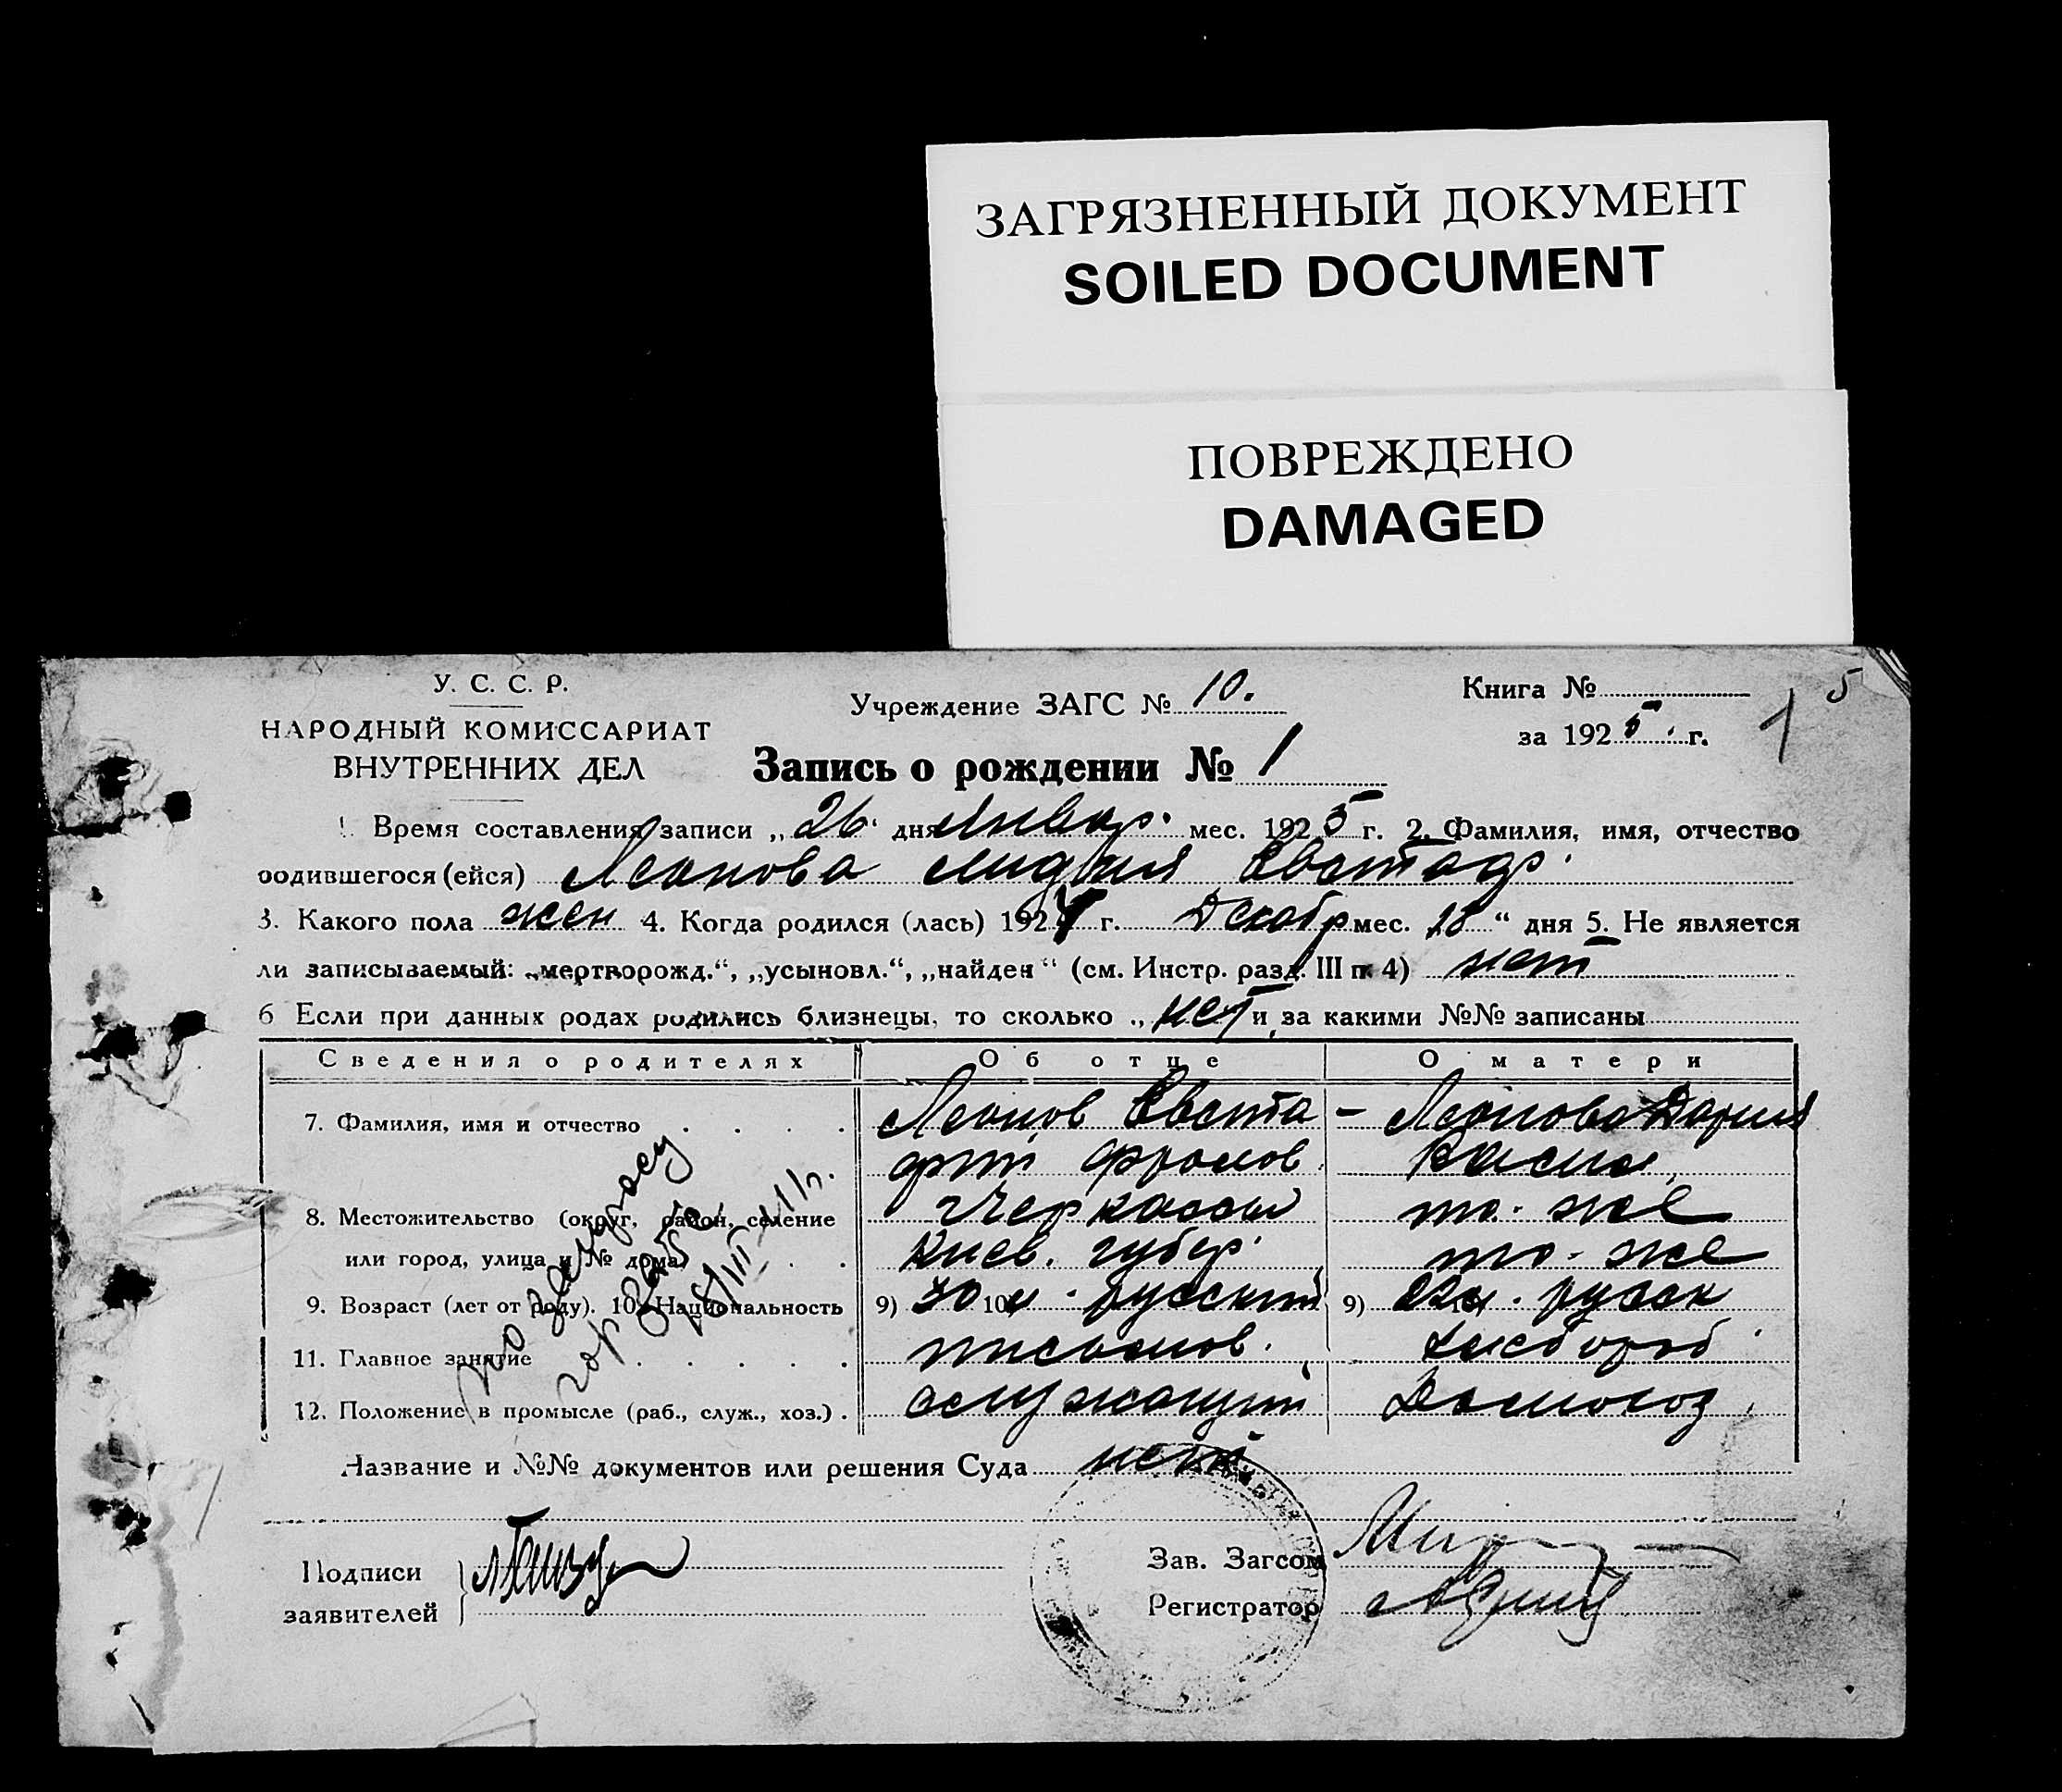 ЗАГРЯЗНЕННЫЙ ДОКУМЕНТ
SOILED DOCUMENT
ПОВРЕЖДЕНО
DAMAGED
У. С. С. Р.
НАРОДНЫЙ КОМИССАРИАТ
ВНУТРЕННИХ ДЕЛ
Учреждение ЗАГС № 10.
Книга №
за 1925 г.
1 5
Запись о рождении № 1
1. Время составления записи „ 26. дня Январ. мес. 1925 г. 2. Фамилия, имя, отчество
родившегося (ейся) Леонова Лидия Евстафр.
3. Какого пола жен 4. Когда родился (лась) 1924 г. Декабр мес. 28 “ дня 5. Не является
ли записываемый: „мертворожд.“, „усыновл.“, „найден“ (см. Инстр. разд. III п. 4) нет
6 Если при данных родах родились близнецы, то сколько „ нет и за какими №№ записаны
Сведения о родителях Об отце О матери
7. Фамилия, имя и отчество Леонов Евста - Леонова Дария
фий Васил.
8. Местожительство (округ, район, селение Черкассы то-же
или город, улица и № дома) Киев. губер. то-же
9. Возраст (лет от роду). 10. Национальность 9) 30 10) русский 9) 22 русск
11. Главное занятие письмов.
12. Положение в промысле (раб., служ., хоз.) служащий Домохоз.
по запросу
Название и №№ документов или решения Суда нет
Подписи
заявителей
Зав. Загсом
Регистратор